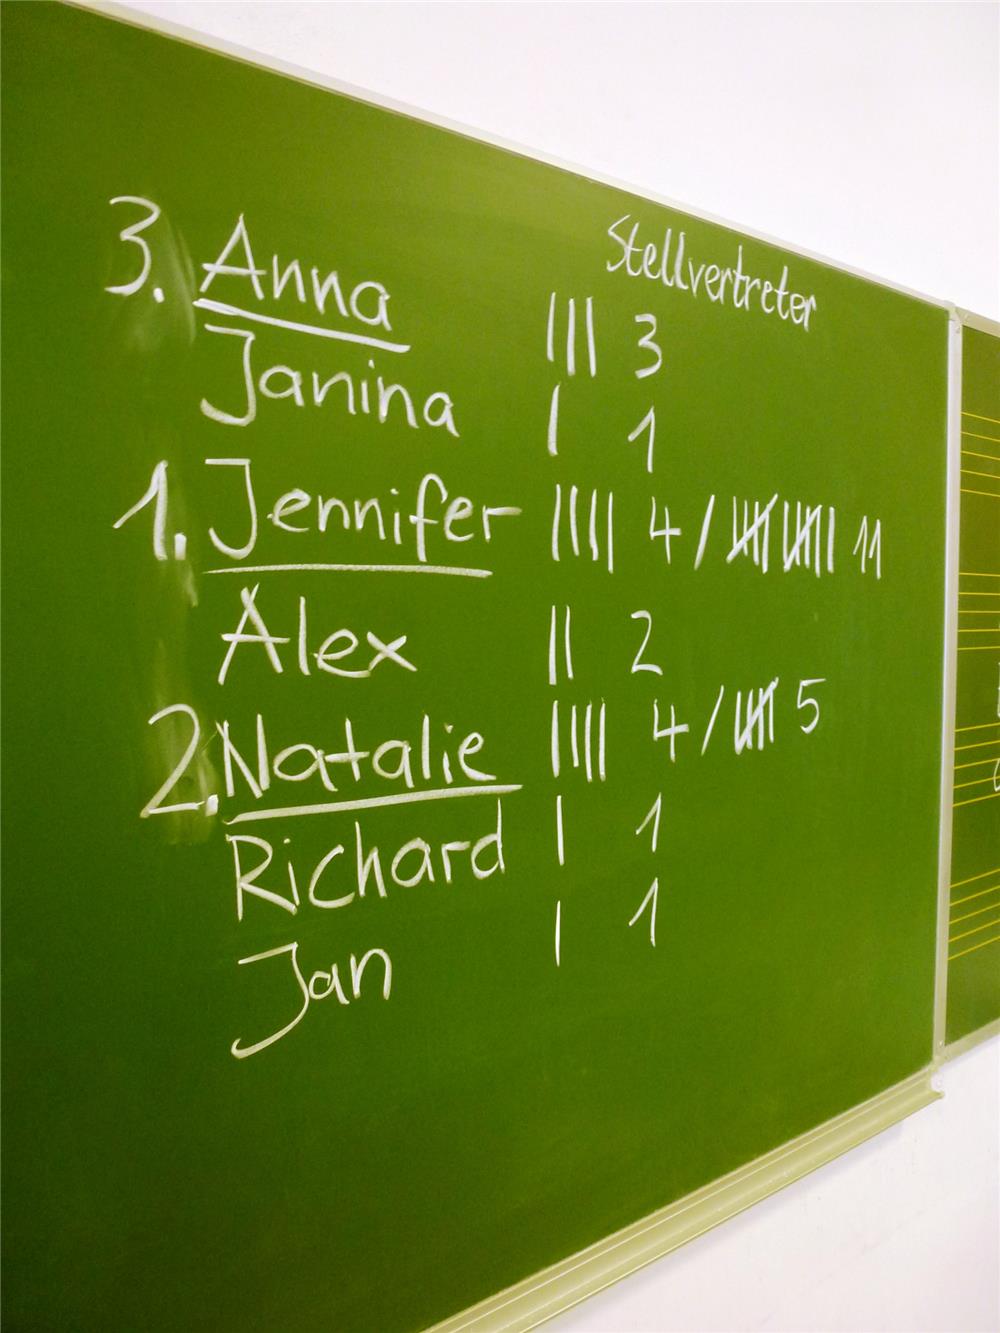 Stellvertreter
3. Anna ||| 3
Janina | 1
1. Jennifer |||| 4 / |||| |||| | 11
Alex || 2
2. Natalie |||| 4 / |||| 5
Richard | 1
Jan | 1